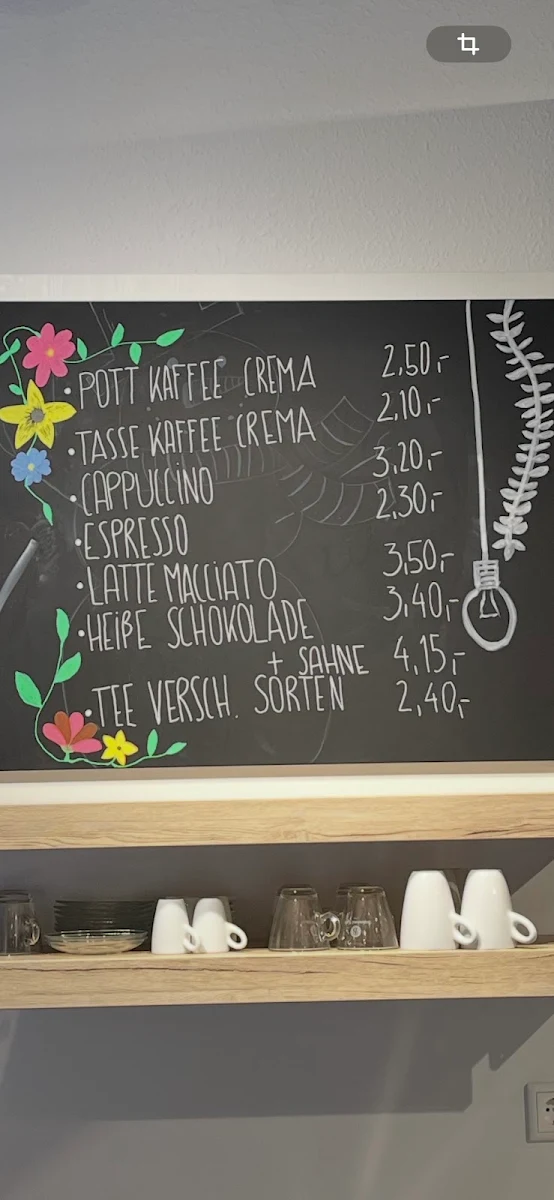 • POTT KAFFEE CREMA 2,50,-
• TASSE KAFFEE CREMA 2,10,-
• CAPPUCCINO 3,20,-
• ESPRESSO 2,30,-
• LATTE MACCIATO 3,50,-
• HEIßE SCHOKOLADE 3,40,-
+ SAHNE 4,15,-
• TEE VERSCH. SORTEN 2,40,-